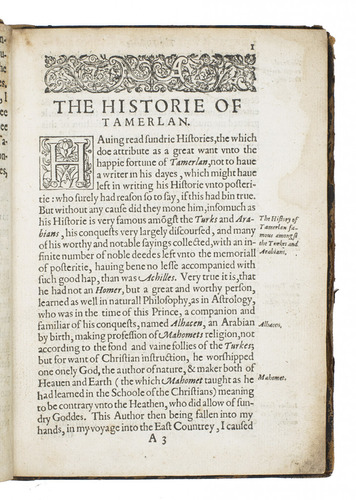 1
THE HISTORIE OF
TAMERLAN.
HAuing read sundrie Histories, the which
doe attribute as a great want vnto the
happie fortune of Tamerlan, not to haue
a writer in his dayes, which might haue
left in writing his Historie vnto posteri-
tie: who surely had reason so to say, if this had bin true.
But without any cause did they mone him, insomuch as
his Historie is very famous amõgst the Turks and Ara-
bians, his conquests very largely discoursed, and many
of his worthy and notable sayings collected, with an in-
finite number of noble deedes left vnto the memoriall
of posteritie, hauing bene no lesse accompanied with
such good hap, than was Achilles. Very true it is, that
he had not an Homer, but a great and worthy person,
learned as well in naturall Philosophy, as in Astrology,
who was in the time of this Prince, a companion and
familiar of his conquests, named Alhacen, an Arabian
by birth, making profession of Mahomets religion, not
according to the fond and vaine follies of the Turkes;
but for want of Christian instruction, he worshipped
one onely God, the author of nature, & maker both of
Heauen and Earth (the which Mahomet taught as he
had learned in the Schoole of the Christians) meaning
to be contrary vnto the Heathen, who did allow of sun-
dry Goddes. This Author then being fallen into my
hands, in my voyage into the East Countrey, I caused
A 3
The History of
Tamerlan fa-
mous amongst
the Turkes and
Arabians.
Alhacen.
Mahomet.